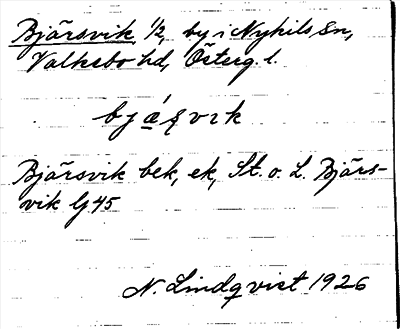 Bjärsvik ½, by i Nykils sn,
Valkebo hd, Österg. l.
bjäʂvik
Bjärsvik bek, ek, St. o. L. Bjärs-
vik G 45
N. Lindqvist 1926